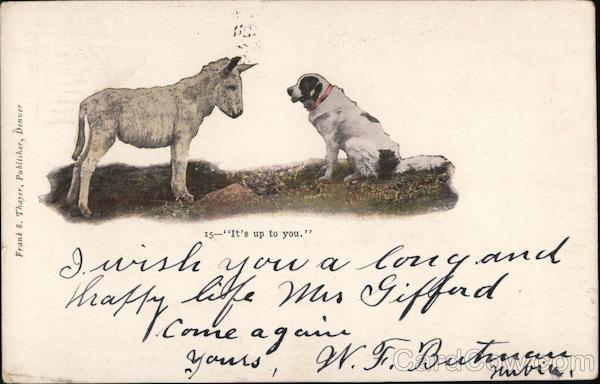 Frank S. Thayer, Publisher, Denver
15—"It's up to you."
I wish you a long and
Happy life Mrs Gifford
Come again
Yours, W. F. Butman
CardCow.com